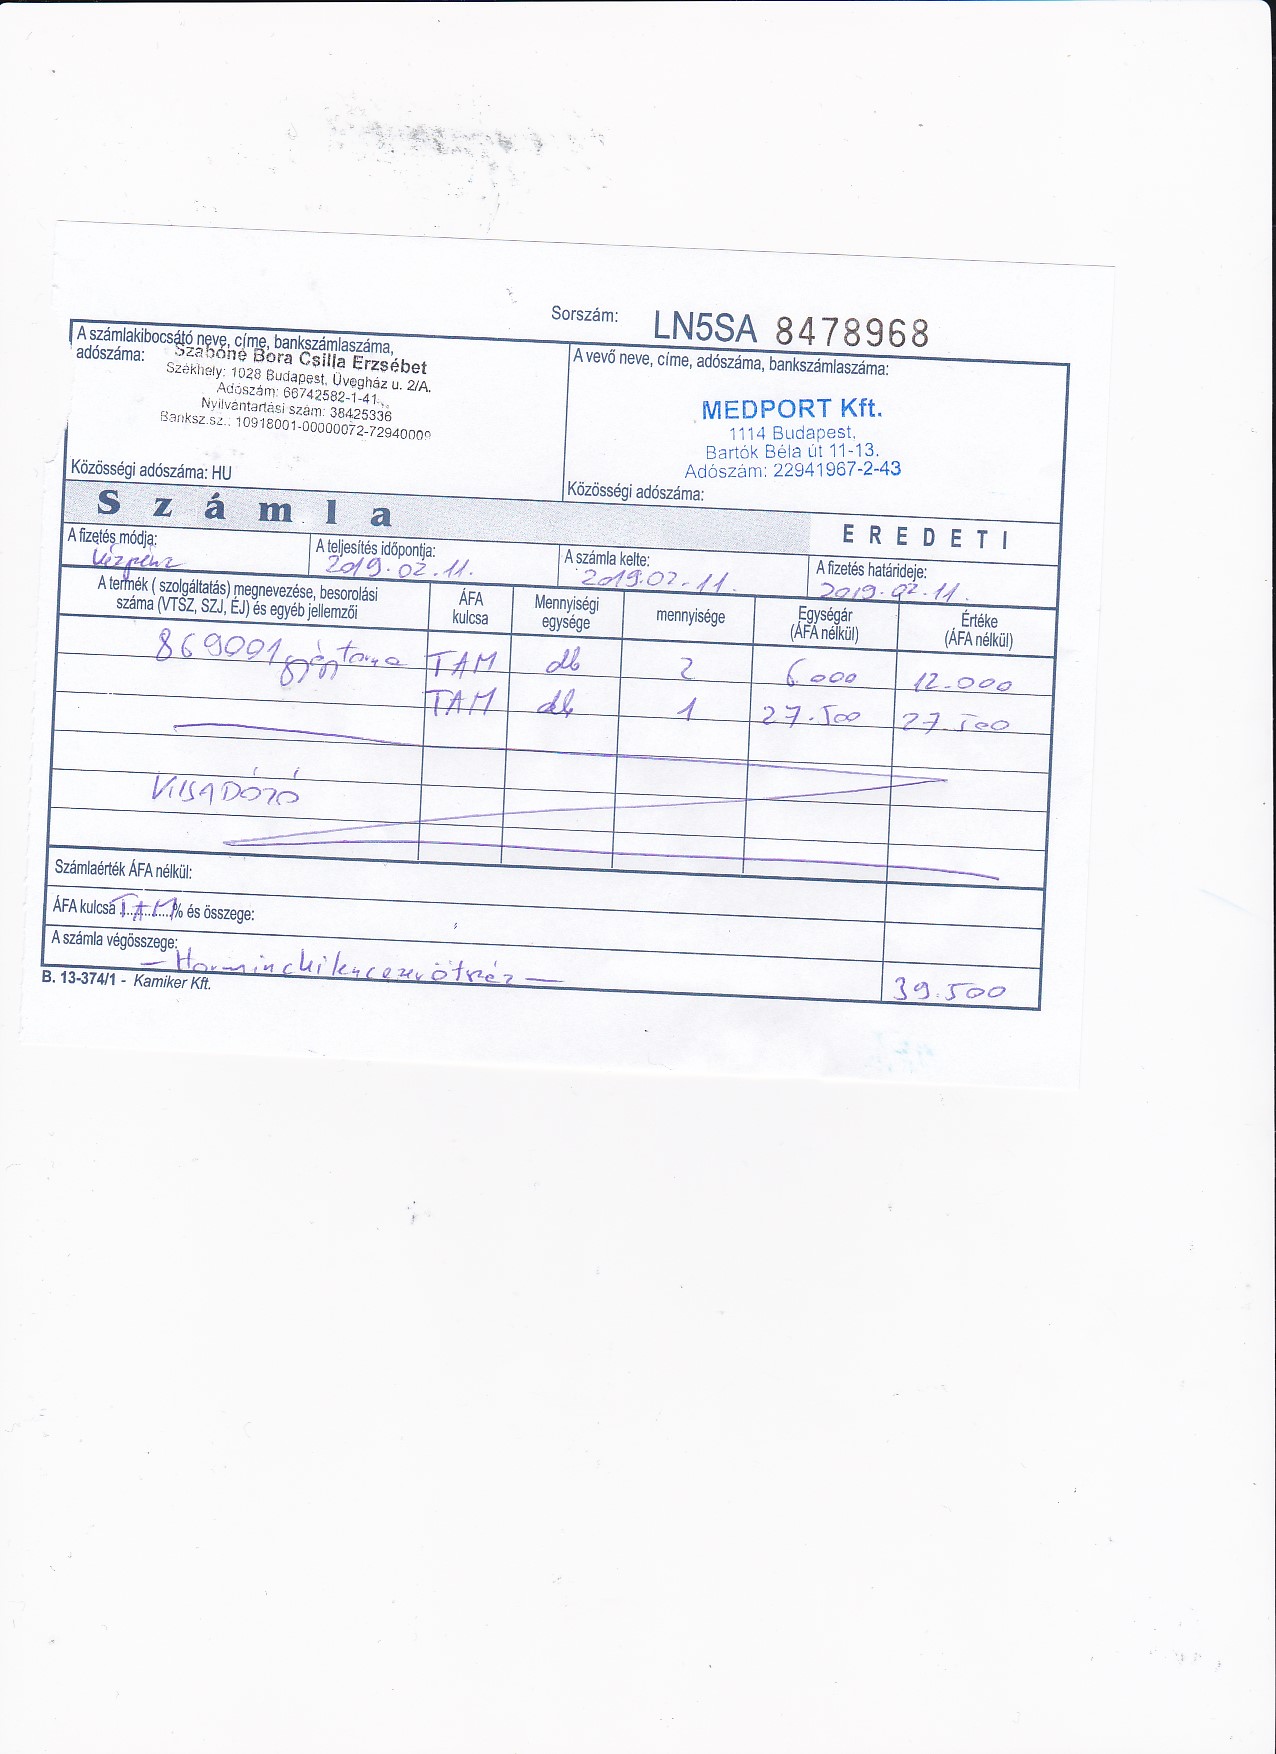 Sorszám: LN5SA 8478968
A számlakibocsátó neve, címe, bankszámlaszáma,
adószáma:
Szabóné Bora Csilla Erzsébet
Székhely: 1028 Budapest, Üvegház u. 2/A.
Adószám: 66742582-1-41
Nyilvántartási szám: 38425336
Banksz.sz.: 10918001-00000072-72940009
Közösségi adószáma: HU
A vevő neve, címe, adószáma, bankszámlaszáma:
MEDPORT Kft.
1114 Budapest,
Bartók Béla út 11-13.
Adószám: 22941967-2-43
Közösségi adószáma:
Számla
EREDETI
A fizetés módja:
Készpénz
A teljesítés időpontja:
2019.02.11.
A számla kelte:
2019.02.11.
A fizetés határideje:
2019.02.11.
A termék ( szolgáltatás) megnevezése, besorolási
száma (VTSZ, SZJ, ÉJ) és egyéb jellemzői
ÁFA
kulcsa
Mennyiségi
egysége
mennyisége
Egységár
(ÁFA nélkül)
Értéke
(ÁFA nélkül)
869001 gyógytorna TAM db 2 6.000 12.000
TAM db 1 27.500 27.500
Számlaérték ÁFA nélkül:
ÁFA kulcsa TAM % és összege:
A számla végösszege:
- Harminckilencezerötszáz - 39.500
B. 13-374/1 - Kamiker Kft.